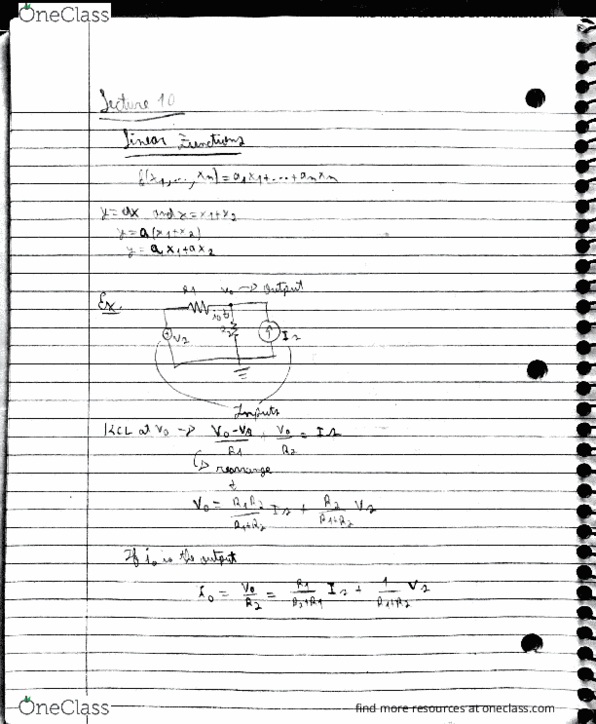 OneClass
find more resources at oneclass.com
Lecture 10
Linear Functions
f(x1, ..., xn) = a1x1 + ... + anxn
y = ax and x = x1 + x2
y = a(x1 + x2)
y = ax1 + ax2
Ex.
R1 v0 → Output
i0
R2
Vs
Is
Inputs
KCL at V0 → (V0 - Vs)/R1 + V0/R2 = Is
rearrange
V0 = R1R2/(R1+R2) Is + R2/(R1+R2) Vs
If i0 is the output
i0 = V0/R2 = R1/(R2+R1) Is + 1/(R1+R2) Vs
OneClass
find more resources at oneclass.com